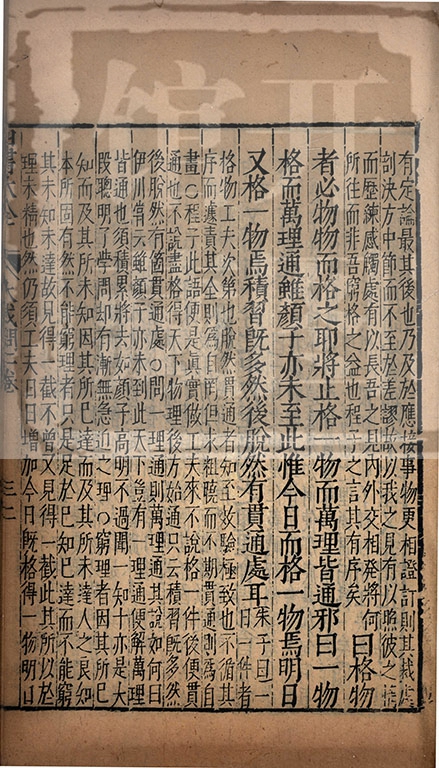 有定論最其後也乃及於應接事物更相證訂則其裁處
剖決方中節而不至於差謬故以我之見有以照彼之情
而歷練感觸處有以長吾之見内外交相發將何
所往而非吾窮格之益也程子之言其有序矣
曰格物
者必物物而格之耶將止格一物而萬理皆通邪曰一物
格而萬理通雖顔子亦未至此惟今日而格一物焉明日
又格一物焉積習既多然後脱然有貫通處耳
朱子曰一
日一件者
格物工夫次第也脱然貫通者知至效驗極致也不循其
序而遽責其全則為自罔但求粗曉而不期貫通則為自
畫○程子此語便是真實做工夫來不說格一件後便貫
通也不說盡格得天下物理後方始通只云積習既多然
後脱然有個貫通處○問一理通則萬理通其說如何曰
伊川嘗云雖顔子亦未到此天下豈有一理通便解萬理
皆通也須積累將去如顔子高明不過聞一知十亦是大
段聰明了學問却有漸無急迫之理○窮理者因其所已
知而及其所未知因其所已達而及其所未達人之良知
本所固有然不能窮理者只是足於已知已達而不能窮
其未知未達故見得一截不曾又見得一截此其所以於
理未精也然仍須工夫日日增加今日既格得一物明日